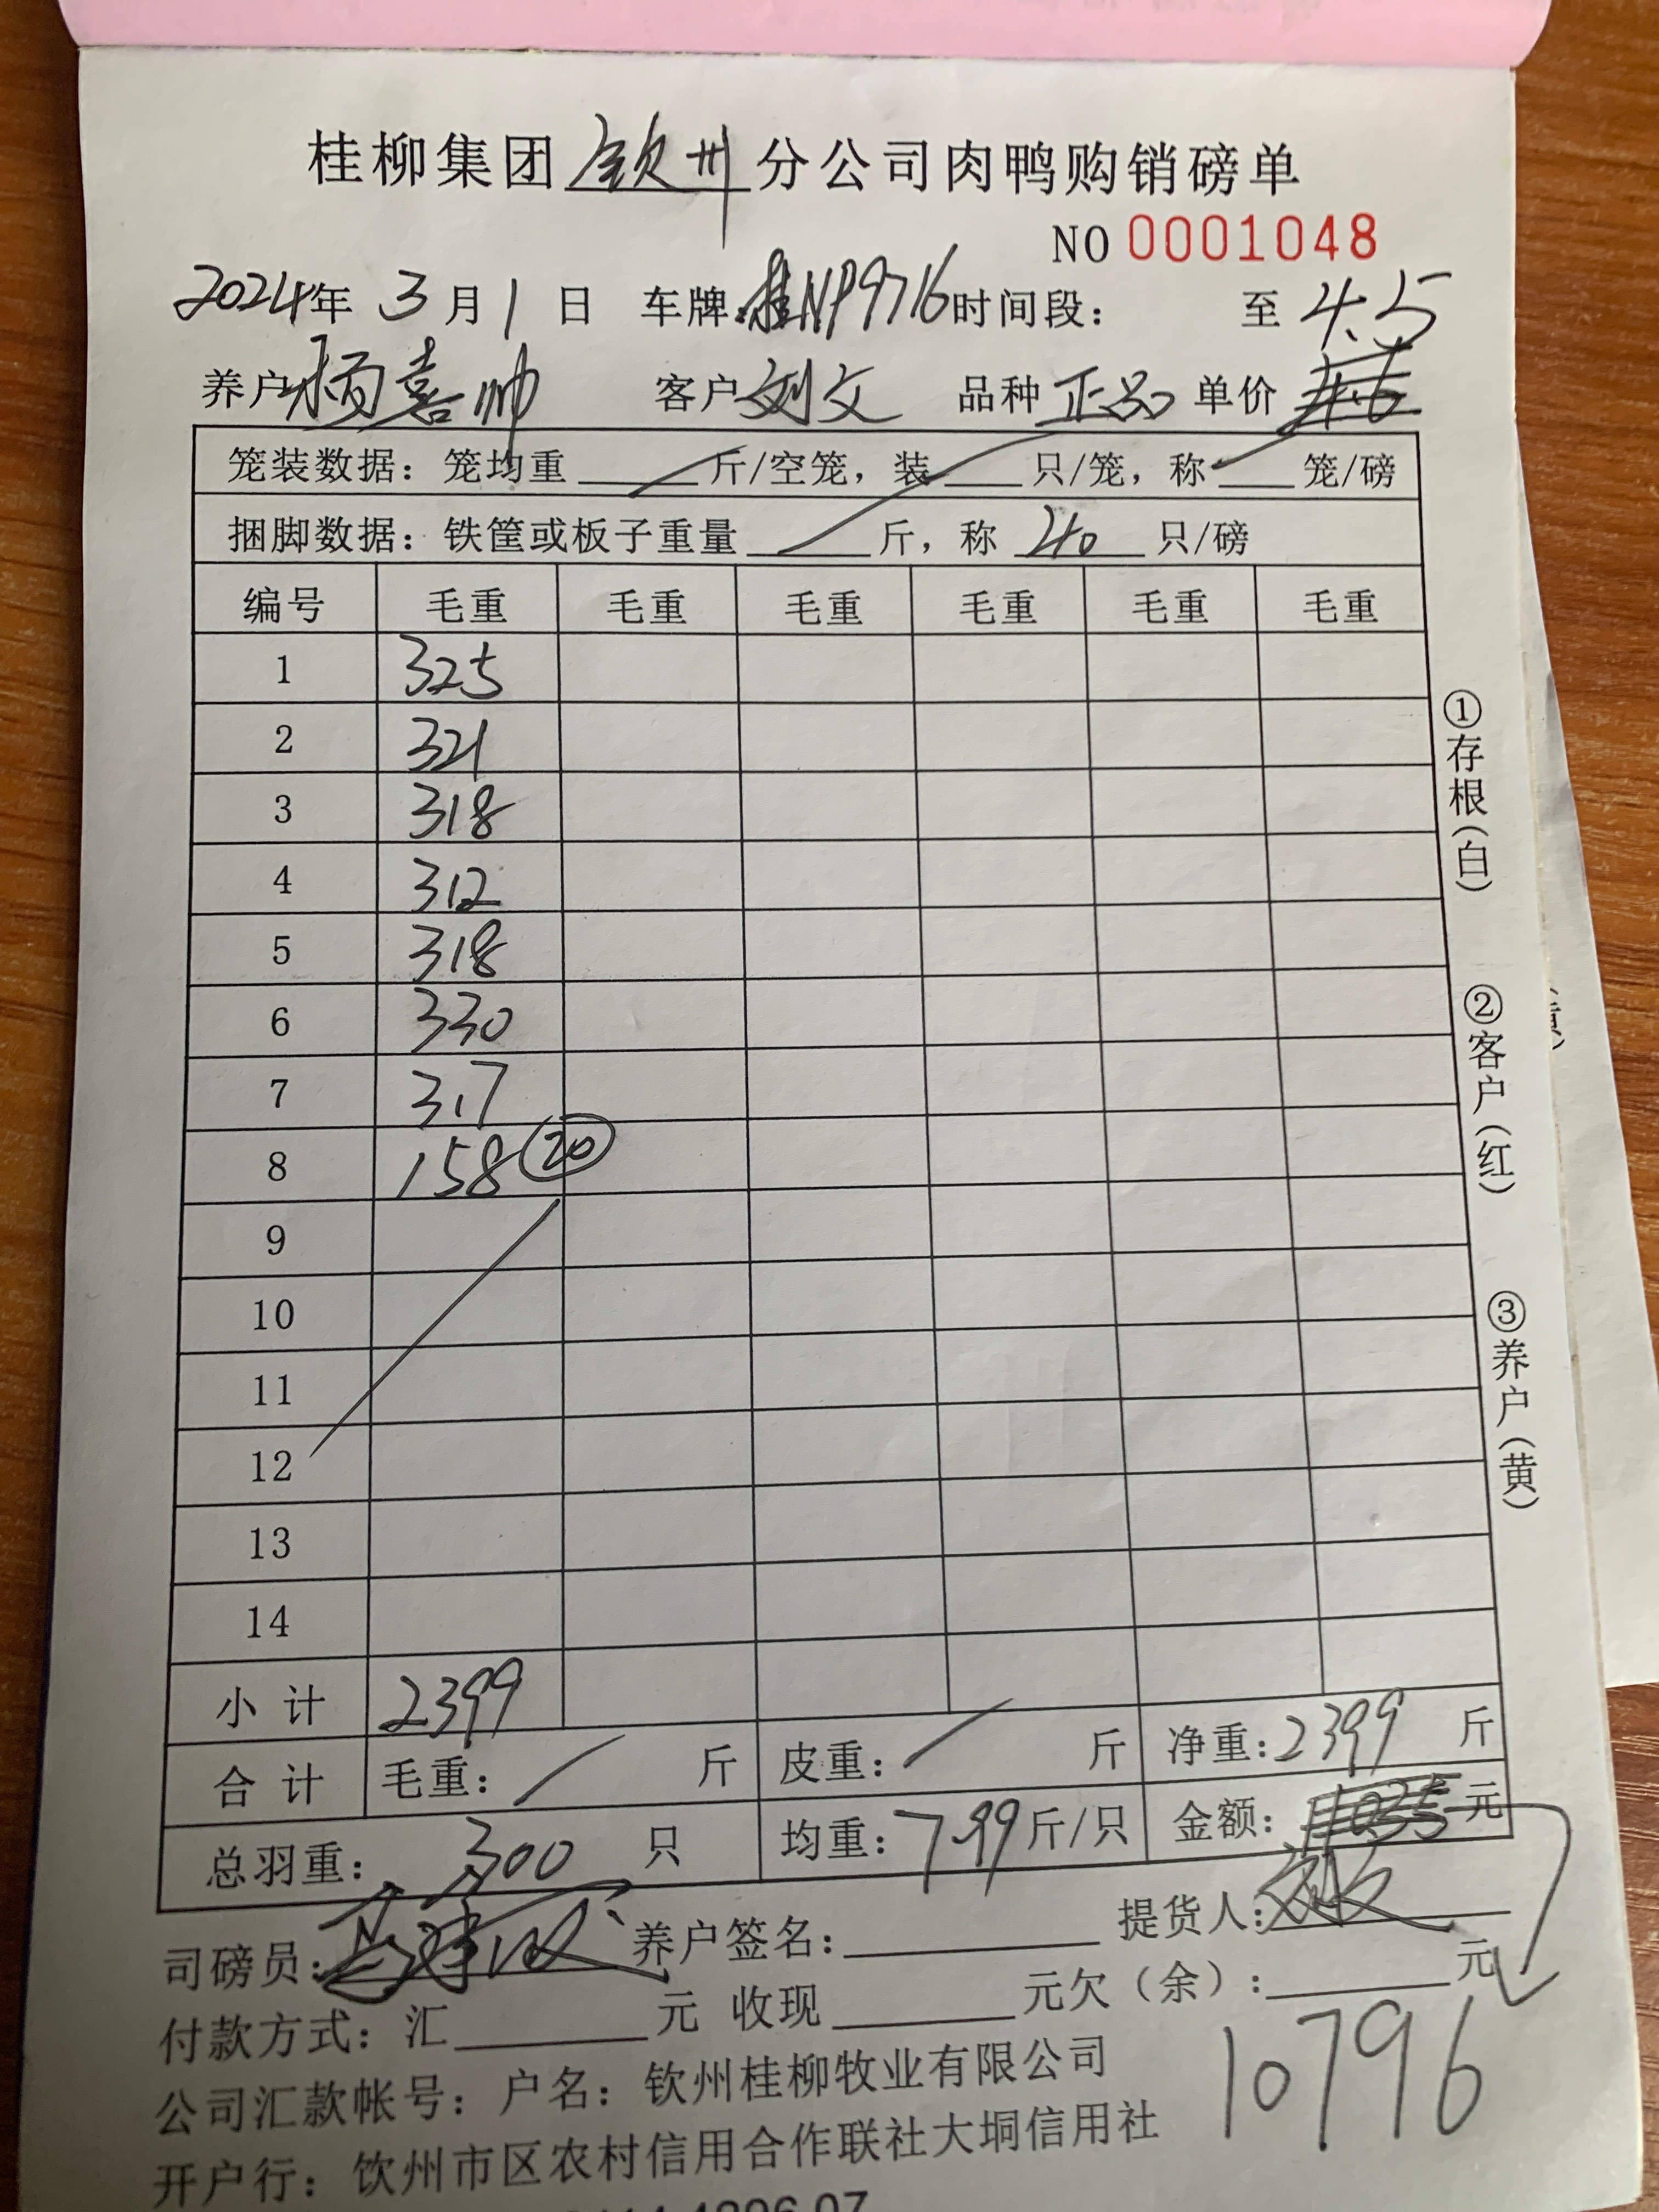 桂柳集团钦州分公司肉鸭购销磅单
NO 0001048
2024年 3月1日 车牌:桂NP9716 时间段: 至 4.5
养户 杨喜帅 客户 刘文 品种 正品 单价
笼装数据：笼均重 斤/空笼，装 只/笼，称 笼/磅
捆脚数据：铁筐或板子重量 斤，称 40 只/磅
编号 毛重 毛重 毛重 毛重 毛重 毛重
1 325
2 321
3 318
4 312
5 318
6 330
7 317
8 158 20
9
10
11
12
13
14
小计 2399
合计 毛重： 斤 皮重： 斤 净重：2399 斤
总羽重： 300 只 均重：7.99斤/只 金额： 元
司磅员： 养户签名： 提货人：
付款方式：汇 元 收现 元欠（余）： 元
10796
公司汇款帐号：户名：钦州桂柳牧业有限公司
开户行：钦州市区农村信用合作联社大垌信用社
①存根(白)
②客户(红)
③养户(黄)